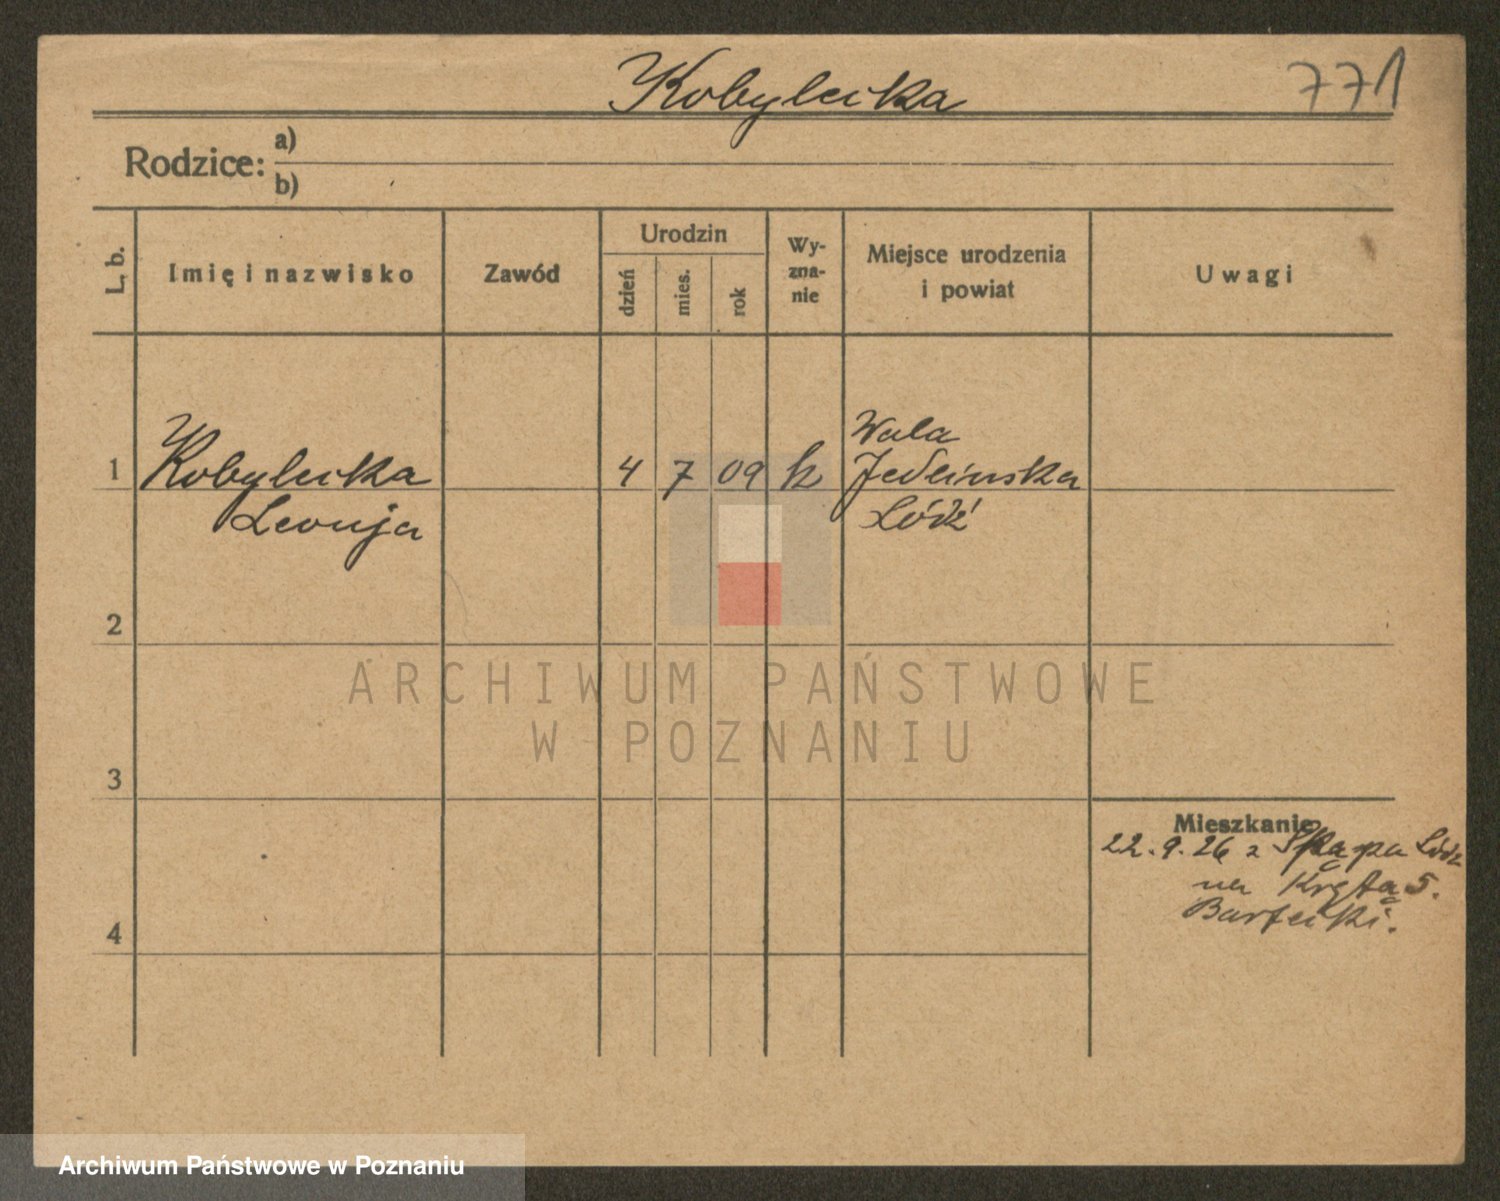 Kobylecka
771
Rodzice:
a)
b)
L. b.
Imię i nazwisko
Zawód
Urodzin
dzień
mies.
rok
Wy-
zna-
nie
Miejsce urodzenia
i powiat
Uwagi
1
Kobylecka
Leonja
4
7
09
k
Wola
Jedlińska
Łódź
2
3
4
Mieszkanie
22.9.26 z Łódź
na Krętą 5.
Bartecki.
ARCHIWUM PAŃSTWOWE
W POZNANIU
Archiwum Państwowe w Poznaniu